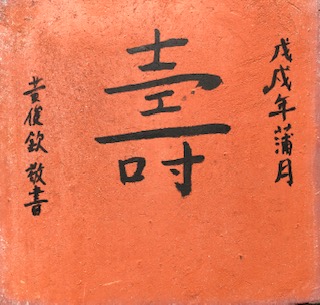 戊戌年蒲月
壽
黄俊欽敬書